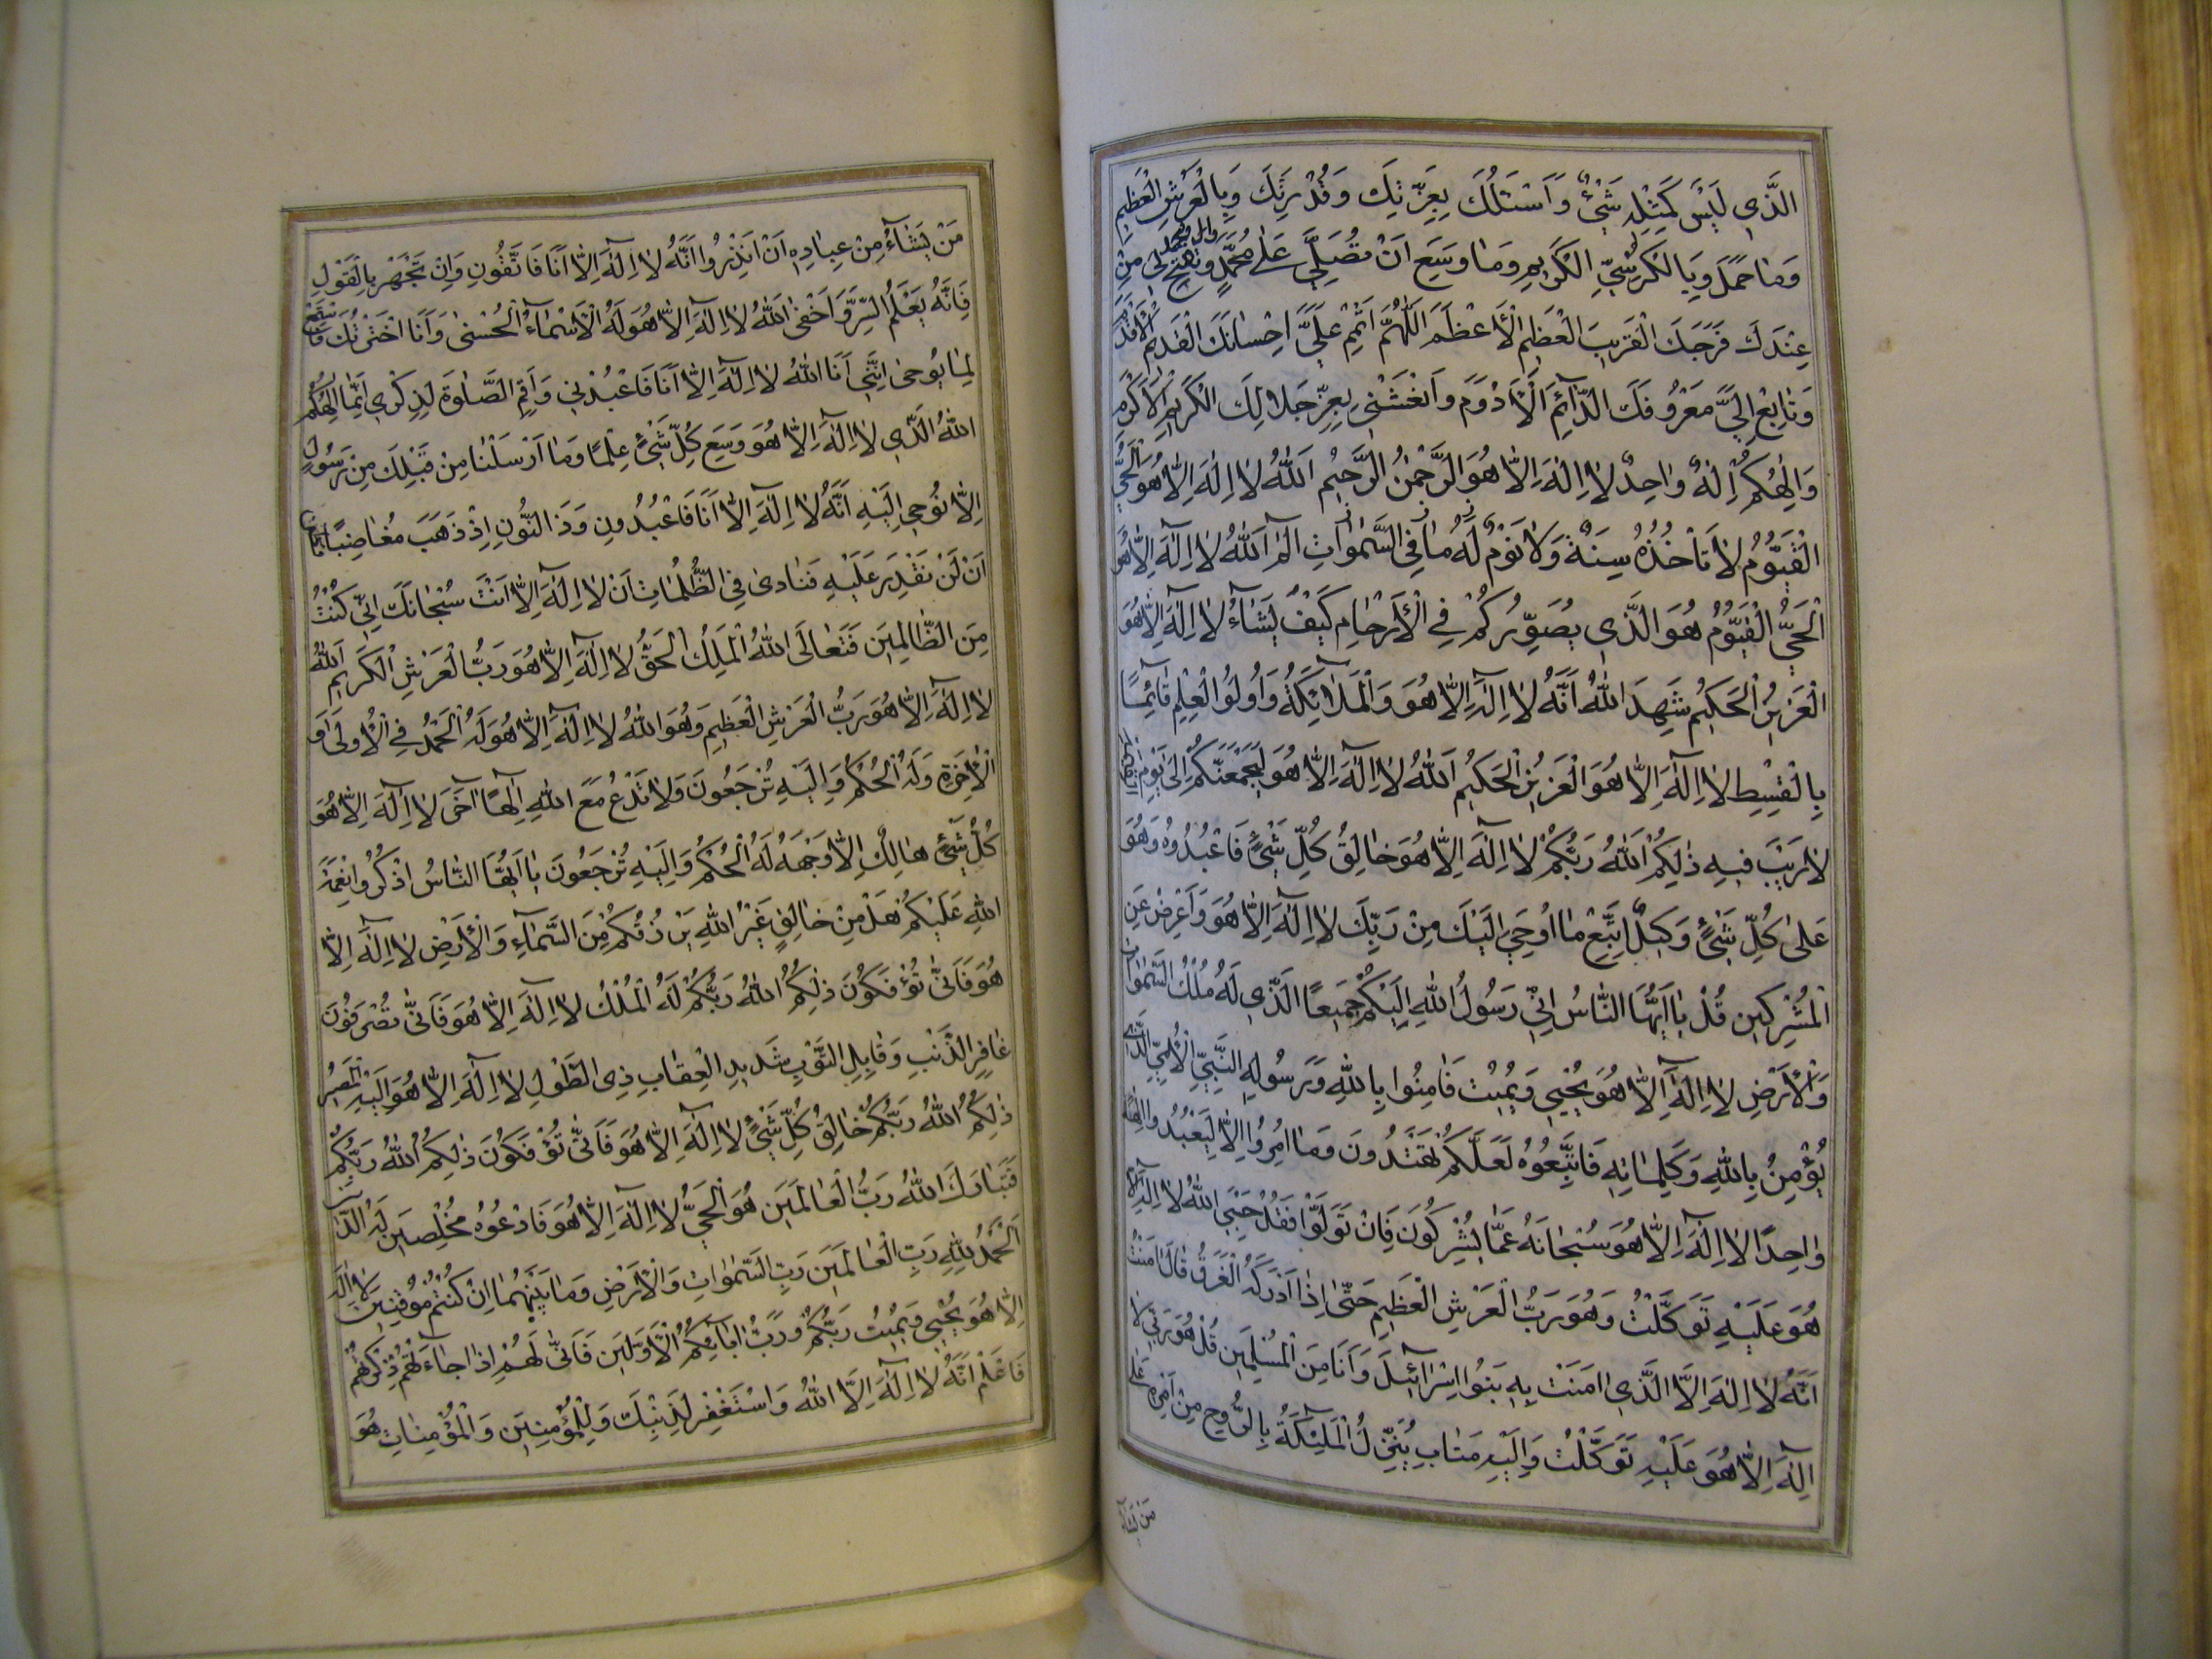 الَّذِي لَيْسَ كَمِثْلِهِ شَيْءٌ وَاَسْئَلُكَ بِعِزَّتِكَ وَقُدْرَتِكَ وَبِالْعَرْشِ الْعَظِيمِ
وَمَا حَمَلَ وَبِالْكُرْسِيِّ الْكَرِيمِ وَمَا وَسِعَ اَنْ تُصَلِّيَ عَلٰى مُحَمَّدٍ وال محمد وتفتح لي مِنْ
عِنْدِكَ فَرَجَكَ الْقَرِيبَ الْعَظِيمَ الْاَعْظَمَ اَللّٰهُمَّ اَتْمِمْ عَلَيَّ اِحْسَانَكَ الْقَدِيمَ الْاَقْدَمَ
وَتَابِعْ اِلَيَّ مَعْرُوفَكَ الدَّائِمَ الْاَدْوَمَ وَانْعَشْنِي بِعِزِّ جَلَالِكَ الْكَرِيمِ الْاَكْرَمِ
وَاِلٰهُكُمْ اِلٰهٌ وَاحِدٌ لَا اِلٰهَ اِلَّا هُوَ الرَّحْمٰنُ الرَّحِيمُ اَللّٰهُ لَا اِلٰهَ اِلَّا هُوَ الْحَيُّ
الْقَيُّومُ لَا تَاْخُذُهُ سِنَةٌ وَلَا نَوْمٌ لَهُ مَا فِي السَّمٰوَاتِ الٓمٓ اَللّٰهُ لَا اِلٰهَ اِلَّا هُوَ
الْحَيُّ الْقَيُّومُ هُوَ الَّذِي يُصَوِّرُكُمْ فِي الْاَرْحَامِ كَيْفَ يَشَاءُ لَا اِلٰهَ اِلَّا هُوَ
الْعَزِيزُ الْحَكِيمُ شَهِدَ اللّٰهُ اَنَّهُ لَا اِلٰهَ اِلَّا هُوَ وَالْمَلَائِكَةُ وَاُولُوا الْعِلْمِ قَائِمًا
بِالْقِسْطِ لَا اِلٰهَ اِلَّا هُوَ الْعَزِيزُ الْحَكِيمُ اَللّٰهُ لَا اِلٰهَ اِلَّا هُوَ لَيَجْمَعَنَّكُمْ اِلٰى يَوْمِ الْقِيٰمَةِ
لَا رَيْبَ فِيهِ ذٰلِكُمُ اللّٰهُ رَبُّكُمْ لَا اِلٰهَ اِلَّا هُوَ خَالِقُ كُلِّ شَيْءٍ فَاعْبُدُوهُ وَهُوَ
عَلٰى كُلِّ شَيْءٍ وَكِيلٌ اِتَّبِعْ مَا اُوحِيَ اِلَيْكَ مِنْ رَبِّكَ لَا اِلٰهَ اِلَّا هُوَ وَاَعْرِضْ عَنِ
الْمُشْرِكِينَ قُلْ يَا اَيُّهَا النَّاسُ اِنِّي رَسُولُ اللّٰهِ اِلَيْكُمْ جَمِيعًا الَّذِي لَهُ مُلْكُ السَّمٰوَاتِ
وَالْاَرْضِ لَا اِلٰهَ اِلَّا هُوَ يُحْيِي وَيُمِيتُ فَاٰمِنُوا بِاللّٰهِ وَرَسُولِهِ النَّبِيِّ الْاُمِّيِّ الَّذِي
يُؤْمِنُ بِاللّٰهِ وَكَلِمَاتِهِ فَاتَّبِعُوهُ لَعَلَّكُمْ تَهْتَدُونَ وَمَا اُمِرُوا اِلَّا لِيَعْبُدُوا اِلٰهًا
وَاحِدًا لَا اِلٰهَ اِلَّا هُوَ سُبْحَانَهُ عَمَّا يُشْرِكُونَ فَاِنْ تَوَلَّوْا فَقُلْ حَسْبِيَ اللّٰهُ لَا اِلٰهَ اِلَّا
هُوَ عَلَيْهِ تَوَكَّلْتُ وَهُوَ رَبُّ الْعَرْشِ الْعَظِيمِ حَتّٰى اِذَا اَدْرَكَهُ الْغَرَقُ قَالَ اٰمَنْتُ
اَنَّهُ لَا اِلٰهَ اِلَّا الَّذِي اٰمَنَتْ بِهِ بَنُوا اِسْرَائِيلَ وَاَنَا مِنَ الْمُسْلِمِينَ قُلْ هُوَ رَبِّي لَا
اِلٰهَ اِلَّا هُوَ عَلَيْهِ تَوَكَّلْتُ وَاِلَيْهِ مَتَابِ يُنَزِّلُ الْمَلٰئِكَةَ بِالرُّوحِ مِنْ اَمْرِهِ عَلٰى
مَنْ يَشَاءُ
مَنْ يَشَاءُ مِنْ عِبَادِهِ اَنْ اَنْذِرُوا اَنَّهُ لَا اِلٰهَ اِلَّا اَنَا فَاتَّقُونِ وَاِنْ تَجْهَرْ بِالْقَوْلِ
فَاِنَّهُ يَعْلَمُ السِّرَّ وَاَخْفٰى اَللّٰهُ لَا اِلٰهَ اِلَّا هُوَ لَهُ الْاَسْمَاءُ الْحُسْنٰى وَاَنَا اخْتَرْتُكَ فَاسْتَمِعْ
لِمَا يُوحٰى اِنَّنِي اَنَا اللّٰهُ لَا اِلٰهَ اِلَّا اَنَا فَاعْبُدْنِي وَاَقِمِ الصَّلٰوةَ لِذِكْرِي اِنَّمَا اِلٰهُكُمُ
اللّٰهُ الَّذِي لَا اِلٰهَ اِلَّا هُوَ وَسِعَ كُلَّ شَيْءٍ عِلْمًا وَمَا اَرْسَلْنَا مِنْ قَبْلِكَ مِنْ رَسُولٍ
اِلَّا نُوحِي اِلَيْهِ اَنَّهُ لَا اِلٰهَ اِلَّا اَنَا فَاعْبُدُونِ وَذَا النُّونِ اِذْ ذَهَبَ مُغَاضِبًا فَظَنَّ
اَنْ لَنْ نَقْدِرَ عَلَيْهِ فَنَادٰى فِي الظُّلُمَاتِ اَنْ لَا اِلٰهَ اِلَّا اَنْتَ سُبْحَانَكَ اِنِّي كُنْتُ
مِنَ الظَّالِمِينَ فَتَعَالَى اللّٰهُ الْمَلِكُ الْحَقُّ لَا اِلٰهَ اِلَّا هُوَ رَبُّ الْعَرْشِ الْكَرِيمِ اَللّٰهُ
لَا اِلٰهَ اِلَّا هُوَ رَبُّ الْعَرْشِ الْعَظِيمِ وَهُوَ اللّٰهُ لَا اِلٰهَ اِلَّا هُوَ لَهُ الْحَمْدُ فِي الْاُولٰى وَ
الْاٰخِرَةِ وَلَهُ الْحُكْمُ وَاِلَيْهِ تُرْجَعُونَ وَلَا تَدْعُ مَعَ اللّٰهِ اِلٰهًا اٰخَرَ لَا اِلٰهَ اِلَّا هُوَ
كُلُّ شَيْءٍ هَالِكٌ اِلَّا وَجْهَهُ لَهُ الْحُكْمُ وَاِلَيْهِ تُرْجَعُونَ يَا اَيُّهَا النَّاسُ اذْكُرُوا نِعْمَةَ
اللّٰهِ عَلَيْكُمْ هَلْ مِنْ خَالِقٍ غَيْرُ اللّٰهِ يَرْزُقُكُمْ مِنَ السَّمَاءِ وَالْاَرْضِ لَا اِلٰهَ اِلَّا
هُوَ فَاَنّٰى تُؤْفَكُونَ ذٰلِكُمُ اللّٰهُ رَبُّكُمْ لَهُ الْمُلْكُ لَا اِلٰهَ اِلَّا هُوَ فَاَنّٰى تُصْرَفُونَ
غَافِرِ الذَّنْبِ وَقَابِلِ التَّوْبِ شَدِيدِ الْعِقَابِ ذِي الطَّوْلِ لَا اِلٰهَ اِلَّا هُوَ اِلَيْهِ الْمَصِيرُ
ذٰلِكُمُ اللّٰهُ رَبُّكُمْ خَالِقُ كُلِّ شَيْءٍ لَا اِلٰهَ اِلَّا هُوَ فَاَنّٰى تُؤْفَكُونَ ذٰلِكُمُ اللّٰهُ رَبُّكُمْ
فَتَبَارَكَ اللّٰهُ رَبُّ الْعَالَمِينَ هُوَ الْحَيُّ لَا اِلٰهَ اِلَّا هُوَ فَادْعُوهُ مُخْلِصِينَ لَهُ الدِّينَ
اَلْحَمْدُ لِلّٰهِ رَبِّ الْعَالَمِينَ رَبِّ السَّمٰوَاتِ وَالْاَرْضِ وَمَا بَيْنَهُمَا اِنْ كُنْتُمْ مُوقِنِينَ لَا اِلٰهَ
اِلَّا هُوَ يُحْيِي وَيُمِيتُ رَبُّكُمْ وَرَبُّ اٰبَائِكُمُ الْاَوَّلِينَ فَاَنّٰى لَهُمْ اِذَا جَاءَتْهُمْ ذِكْرٰيهُمْ
فَاعْلَمْ اَنَّهُ لَا اِلٰهَ اِلَّا اللّٰهُ وَاسْتَغْفِرْ لِذَنْبِكَ وَلِلْمُؤْمِنِينَ وَالْمُؤْمِنَاتِ هُوَ